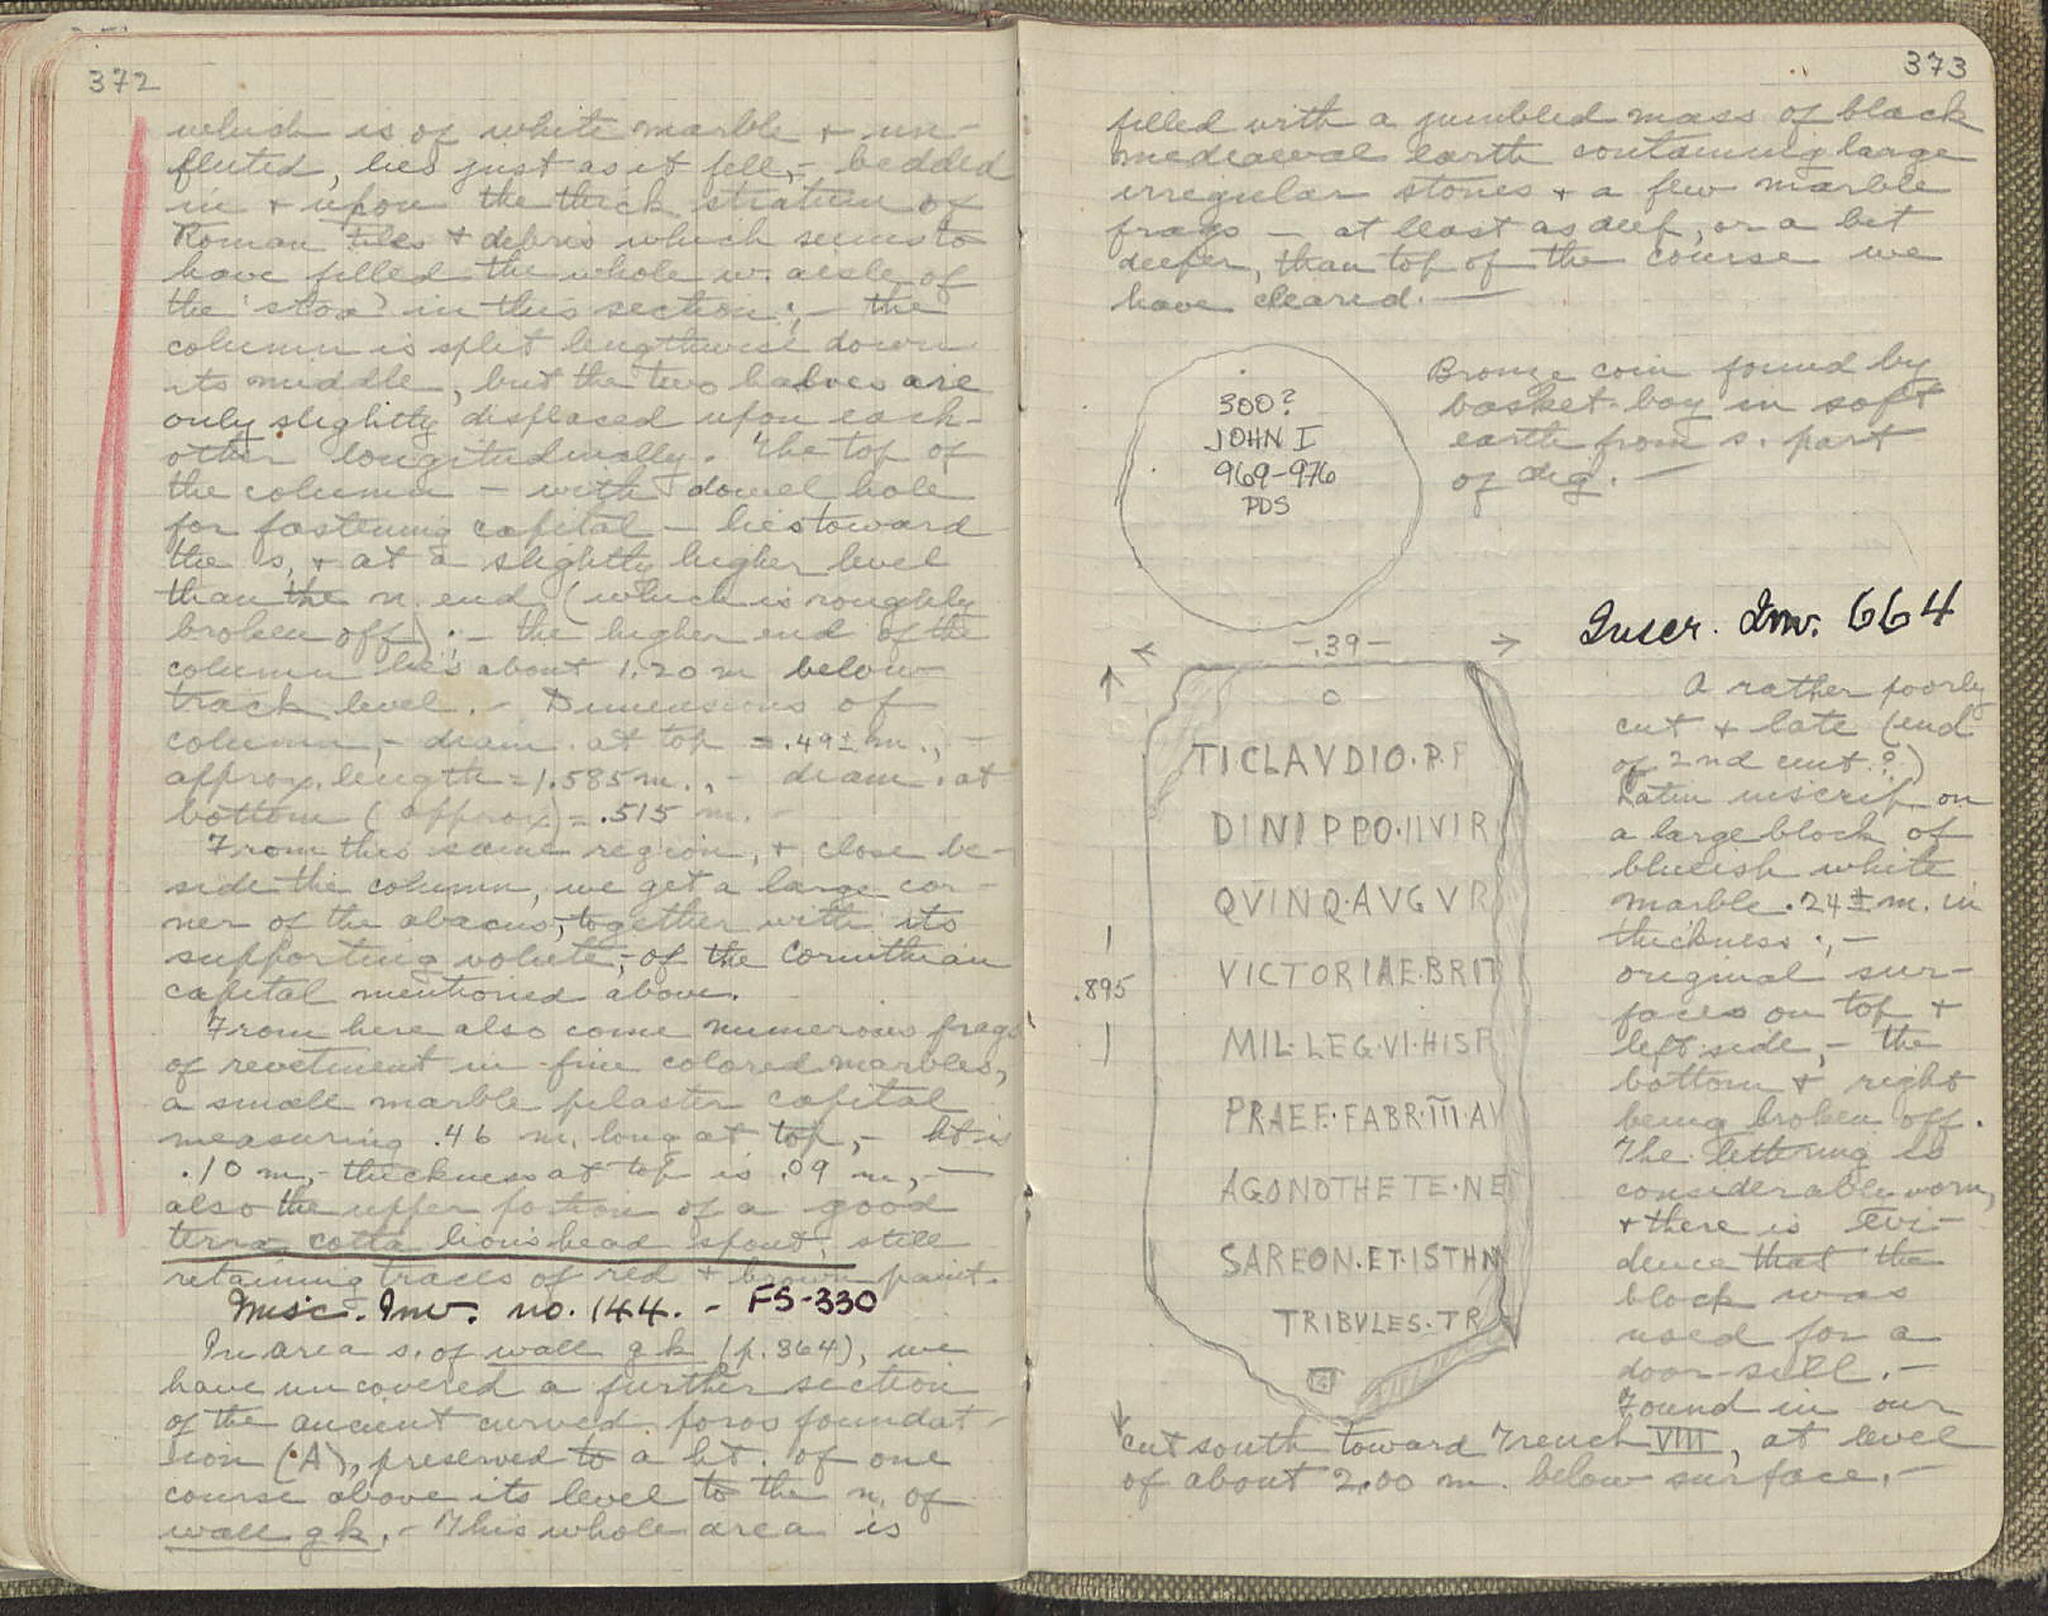 372
which is of white marble + un-
fluted, lies just as it fell, - bedded
in + upon the thick stratum of
Roman tiles + debris which seems to
have filled the whole w. aisle of
the 'stoa' in this section; - the
column is split lengthwise down
its middle, but the two halves are
only slightly displaced upon each-
other longitudinally. The top of
the column - with dowel hole
for fastening capital - lies toward
the s, + at a slightly higher level
than the n. end (which is roughly
broken off); - the higher end of the
column lies about 1.20 m below
track level. - Dimensions of
column, - diam. at top = .49 ± m., -
approx. length = 1.585 m., - diam. at
bottom (approx) = .515 m. -
From this same region, + close be-
side the column, we get a large cor-
ner of the abacus, together with its
supporting volute, - of the Corinthian
capital mentioned above.
From here also come numerous frags
of revetment in fine colored marbles,
a small marble pilaster capital
measuring .46 m. long at top, - ht is
.10 m, - thickness at top is .09 m, -
also the upper portion of a good
terra cotta lion's head spout, still
retaining traces of red + brown paint.
Misc. Inv. no. 144. - FS-330
In area s. of wall g k (p. 364), we
have uncovered a further section
of the ancient curved poros foundat-
ion (A), preserved to a ht. of one
course above its level to the n. of
wall g k. - This whole area is
373
filled with a jumbled mass of black
mediaeval earth containing large
irregular stones + a few marble
frags - at least as deep, or a bit
deeper, than top of the course we
have cleared. -
300?
JOHN I
969-976
PDS
Bronze coin found by
basket-boy in soft
earth from s. part
of dig. -
Inscr. Inv. 664
-.39-
TICLAVDIO.P.F
DINIPPO.IIVIR
QVINQ.AVGVR
VICTORIAE.BRIT
MIL.LEG.VI.HISP
PRAEF.FABR.III.AV
AGONOTHETE.NE
SAREON.ET.ISTHM
TRIBVLES.TR
.895
A rather poorly
cut + late (end
of 2nd cent.?)
Latin inscrip. on
a large block of
blueish white
marble .24 ± m. in
thickness; -
original sur-
faces on top +
left side, - the
bottom + right
being broken off.
The lettering is
considerably worn,
+ there is evi-
dence that the
block was
used for a
door-sill. -
Found in our
cut south toward Trench VIII, at level
of about 2.00 m. below surface. -